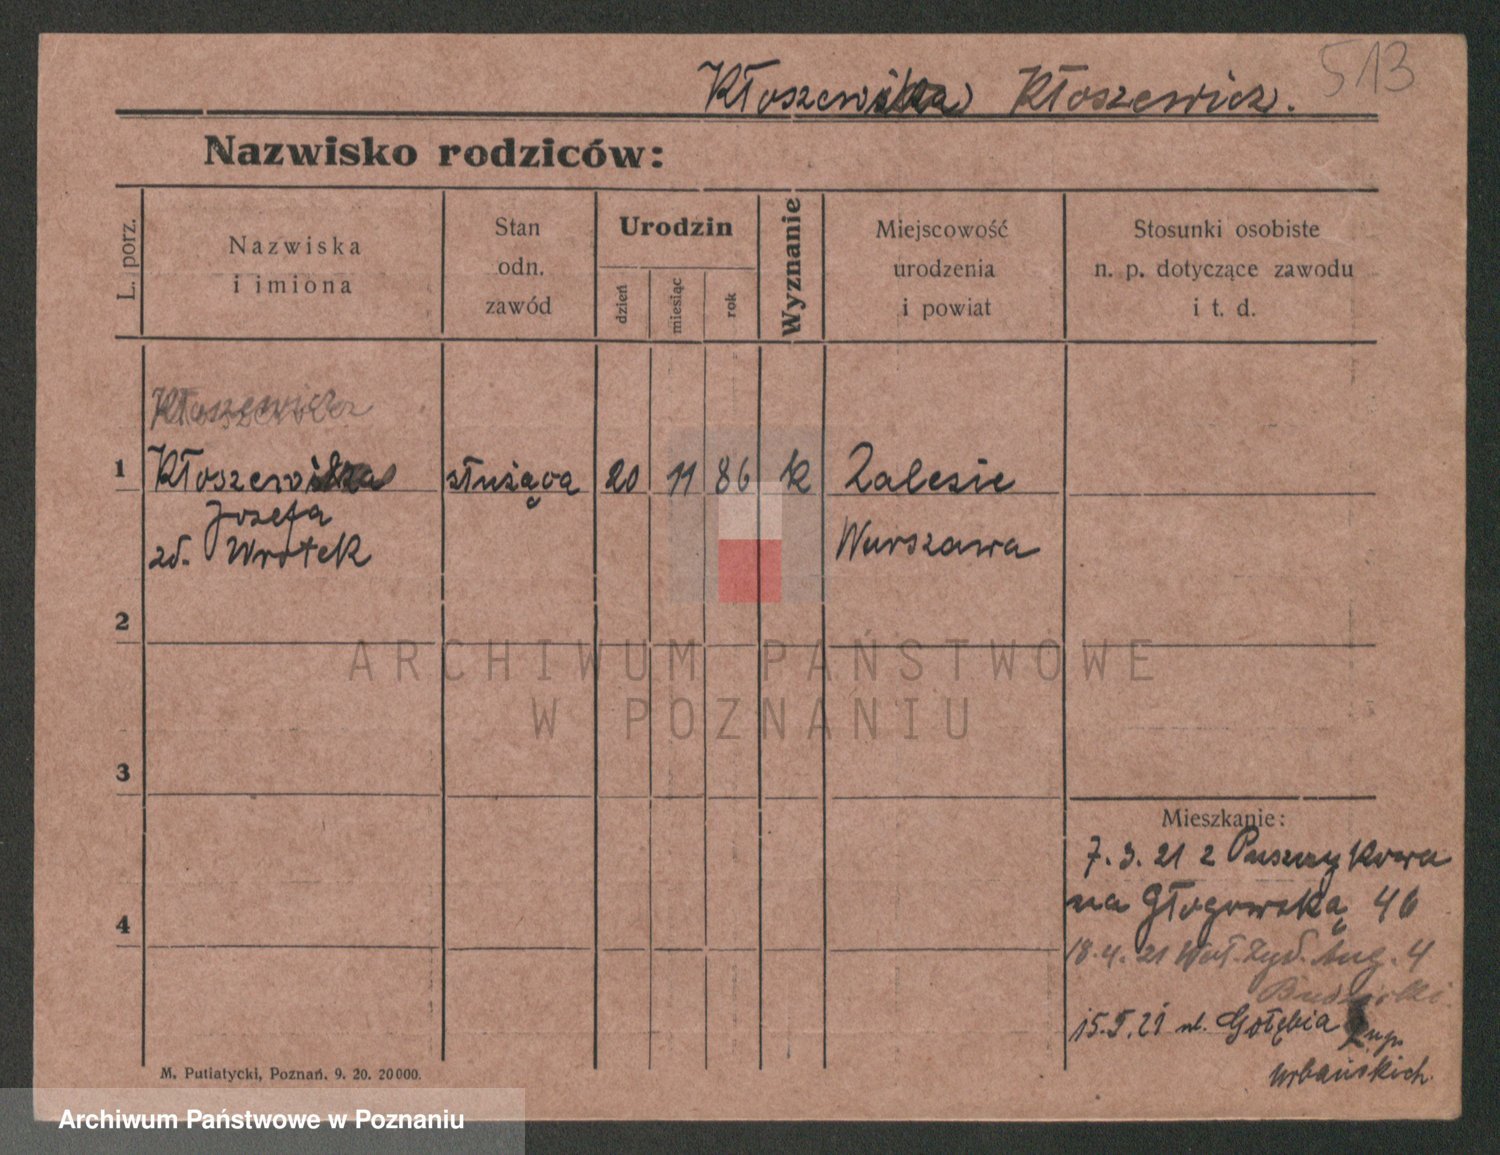 513
Kłoszewska Kłoszewicz.
Nazwisko rodziców:
L. porz.
Nazwiska
i imiona
Stan
odn.
zawód
Urodzin
dzień
miesiąc
rok
Wyznanie
Miejscowość
urodzenia
i powiat
Stosunki osobiste
n. p. dotyczące zawodu
i t. d.
Kłoszewicz
1 Kłoszewska służąca 20 11 86 k Zalesie
Józefa
zd. Wrotek Warszawa
2
ARCHIWUM PAŃSTWOWE
W POZNANIU
3
Mieszkanie:
7.3.21 z Puszczykowa
na Głogowską 46
4
18.4.21 Wał. Zyg. Aug. 4
15.5.21 ul. Gołębia
Urbańskich
M. Putiatycki, Poznań. 9. 20. 20000.
Archiwum Państwowe w Poznaniu